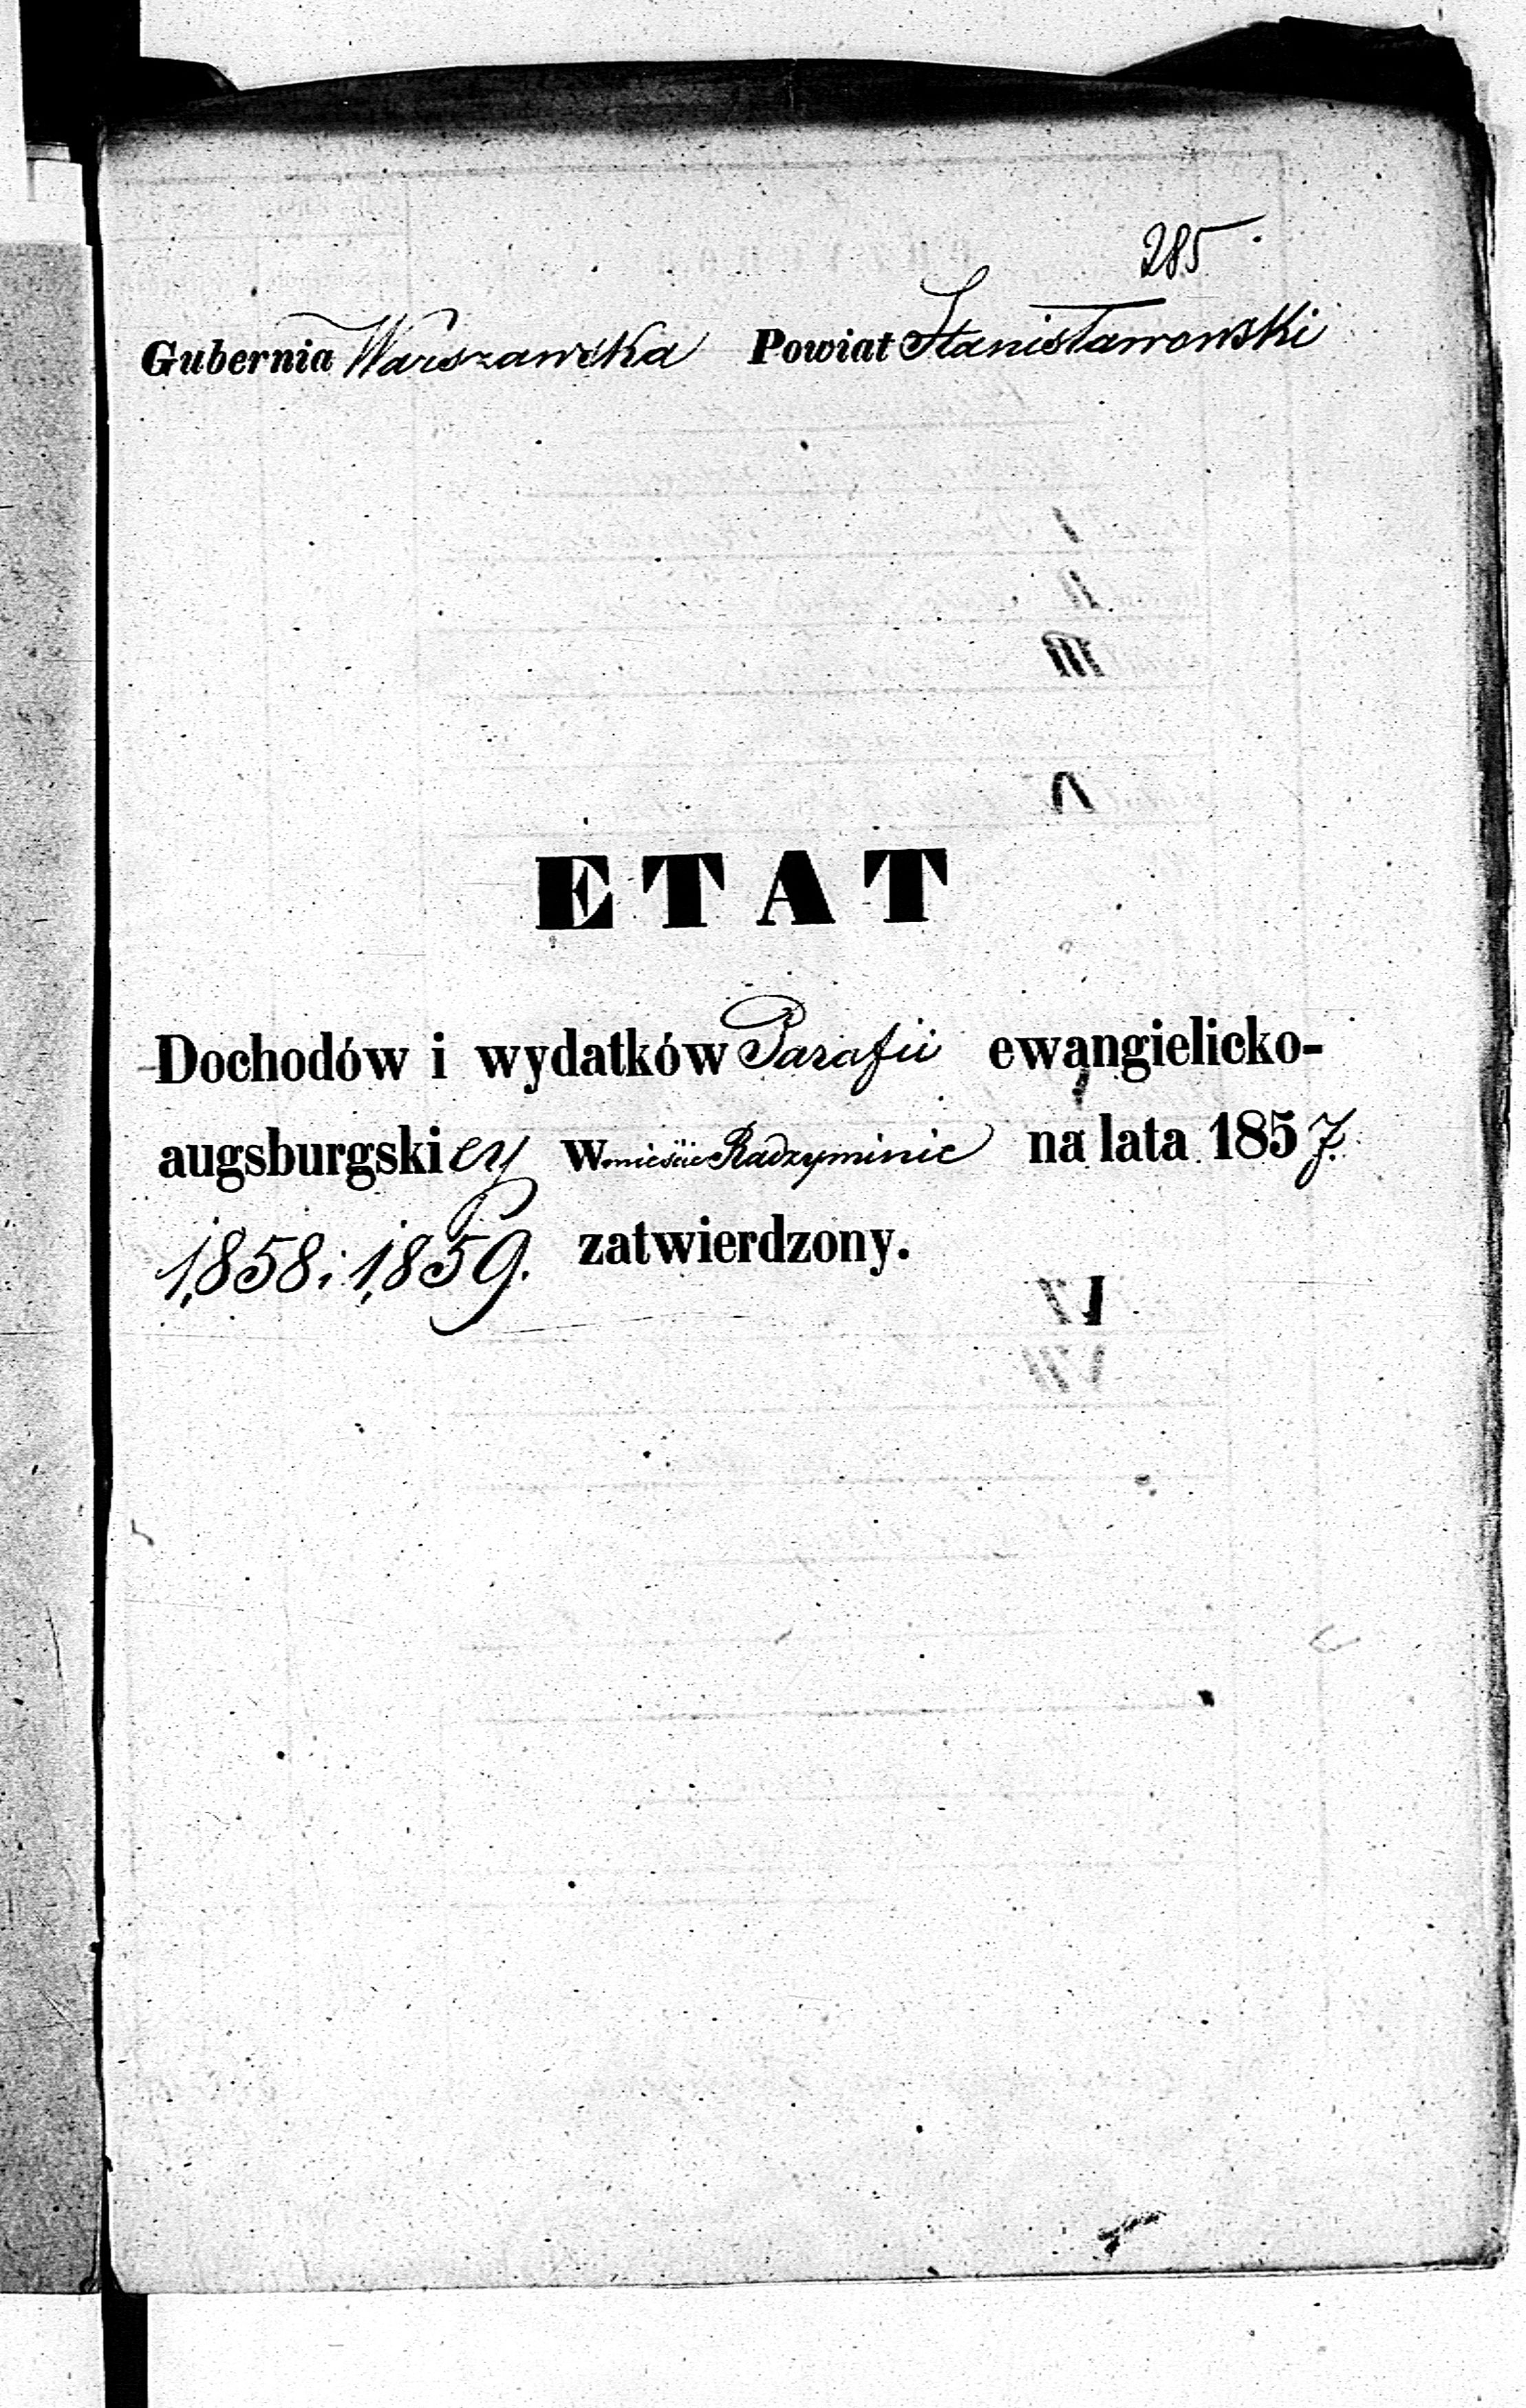 285.
Gubernia Warszawska Powiat Stanisławowski
ETAT
Dochodów i wydatków Parafii ewangielicko-
augsburgskiey W mieście Radzyminie na lata 1857.
1,858 i 1,859. zatwierdzony.